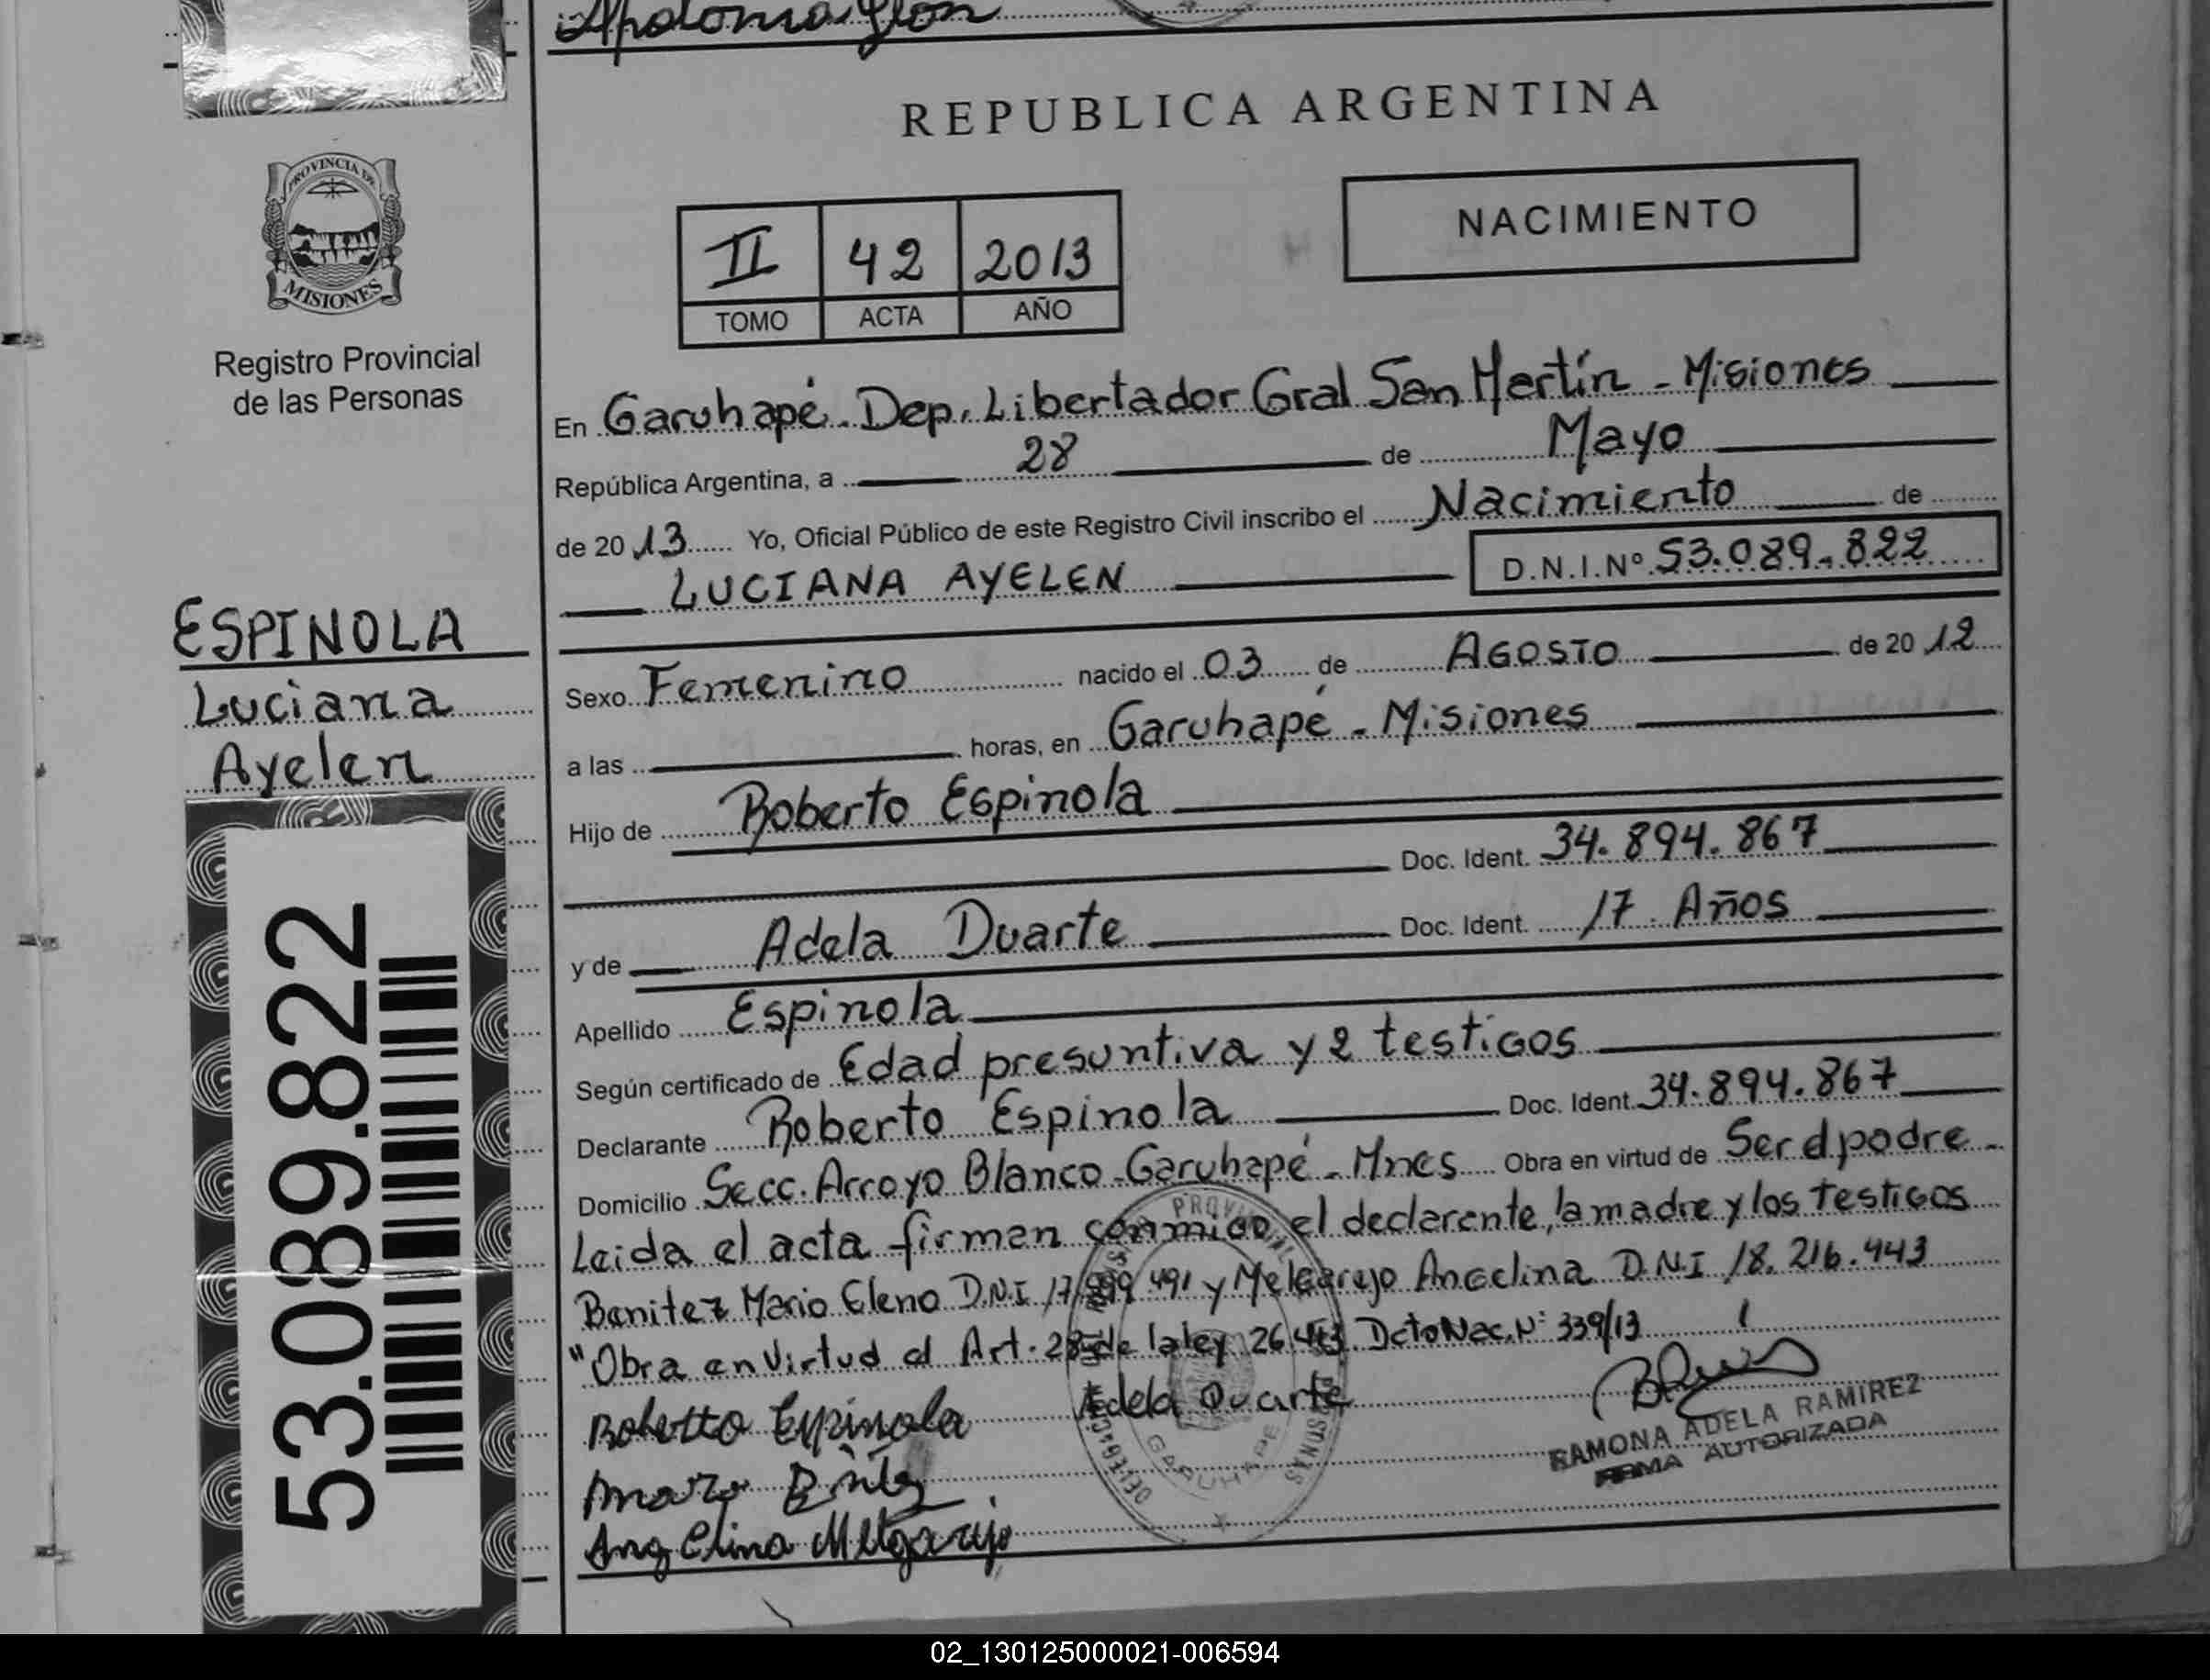 Apolonia
REPUBLICA ARGENTINA
PROVINCIA DE
MISIONES
Registro Provincial
de las Personas
II 42 2013
TOMO ACTA AÑO
NACIMIENTO
En Garuhapé. Dep. Libertador Gral San Martín - Misiones
República Argentina, a 28 de Mayo
de 2013 Yo, Oficial Público de este Registro Civil inscribo el Nacimiento de
LUCIANA AYELEN D.N.I.Nº 53.089.822
ESPINOLA
Luciana
Ayelen
53.089.822
Sexo Femenino nacido el 03 de AGOSTO de 2012
a las horas, en Garuhapé - Misiones
Hijo de Roberto Espinola
Doc. Ident. 34.894.867
y de Adela Duarte Doc. Ident. 17 Años
Apellido Espinola
Según certificado de Edad presuntiva y 2 testigos
Declarante Roberto Espinola Doc. Ident. 34.894.867
Domicilio Secc. Arroyo Blanco - Garuhapé - Mnes Obra en virtud de Ser el padre -
Leida el acta firman conmigo, el declarante, la madre y los testigos
Benitez Mario Eleno D.N.I 17.899.491 y Melgarejo Angelina D.N.I 18.216.443
"Obra en virtud al Art. 28 de la ley 26.413. Dcto Nac. Nº 339/13
Roberto Espinola Adela Duarte
RAMONA ADELA RAMIREZ
FIRMA AUTORIZADA
Angelina Melgarejo
GARUHAPE
02_130125000021-006594